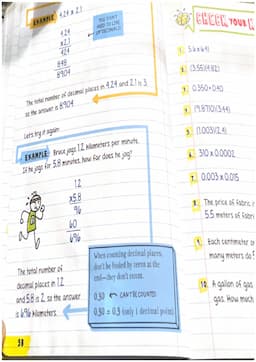 EXAMPLE 4.24 x 2.1
YOU DON'T
NEED TO LINE
UP DECIMALS!
4.24
x2.1
424
848
8904
The total number of decimal places in 4.24 and 2.1 is 3,
so the answer is 8.904.
Let's try it again:
EXAMPLE: Bruce jogs 1.2 kilometers per minute.
If he jogs for 5.8 minutes, how far does he jog?
1.2
x5.8
96
60
696
The total number of
decimal places in 1.2
and 5.8 is 2, so the answer
is 6.96 kilometers.
When counting decimal places,
don't be fooled by zeros at the
end—they don't count.
0.30 CAN'T BE COUNTED
0.30 = 0.3 (only 1 decimal point)
38
CHECK YOUR
1. 5.6 x 6.41
2. (3.55)(4.82)
3. 0.350 • 0.40
4. (9.8710)(3.44)
5. (1.003)(2.4)
6. 310 x 0.0002
7. 0.003 x 0.015
8. The price of fabric
5.5 meters of fabri
9. Each centimeter
many meters do
10. A gallon of gas
gas. How much